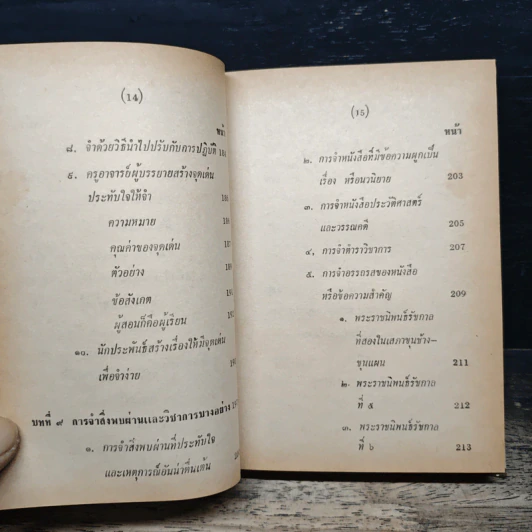 (14)
หน้า
๘. จำด้วยวิธีนำไปปรับกับการปฏิบัติ
๙. ครูอาจารย์ผู้บรรยายสร้างจุดเด่น
ประทับใจให้จำ
ความหมาย
คุณค่าของจุดเด่น
ตัวอย่าง
ข้อสังเกต
ผู้สอนก็คือผู้เรียน
๑๐. นักประพันธ์สร้างเรื่องให้มีจุดเด่น
เพื่อจำง่าย
บทที่ ๙ การจำสิ่งพบผ่านและวิชาการบางอย่าง
๑. การจำสิ่งพบผ่านที่ประทับใจ
และเหตุการณ์อันน่าตื่นเต้น
(15)
หน้า
๒. การจำหนังสือที่มีข้อความผูกเป็น
เรื่อง หรือนวนิยาย 203
๓. การจำหนังสือประวัติศาสตร์
และวรรณคดี 205
๔. การจำตำราวิชาการ 207
๕. การจำอรรถรสของหนังสือ
หรือข้อความสำคัญ 209
๑. พระราชนิพนธ์รัชกาล
ที่สองในเสภาขุนช้าง-
ขุนแผน 211
๒. พระราชนิพนธ์รัชกาล
ที่ ๕ 212
๓. พระราชนิพนธ์รัชกาล
ที่ ๖ 213